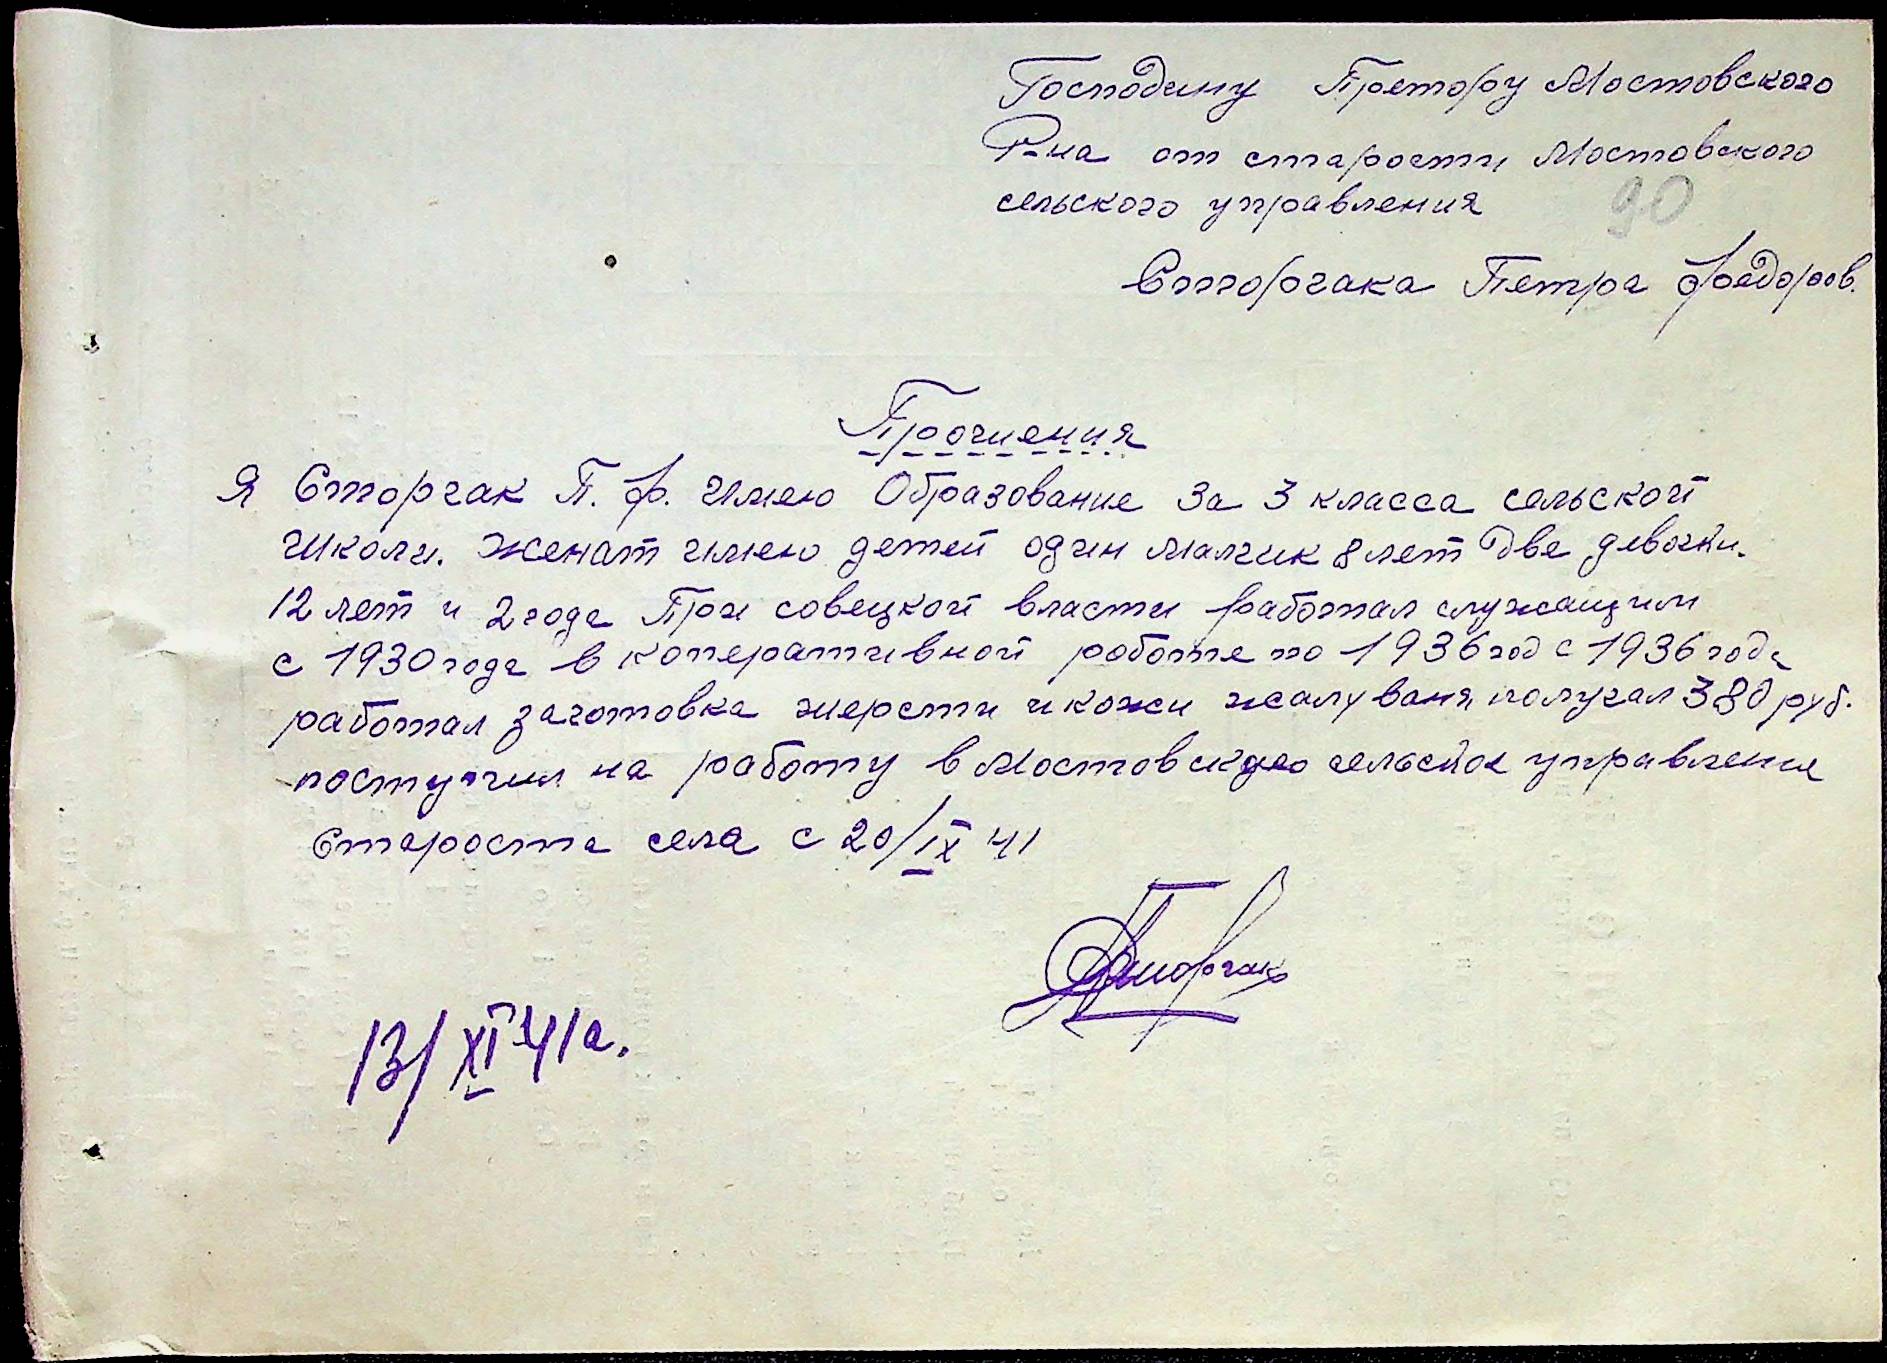 Господину Претору Мостовского
Р-на от старости Мостовского
сельского управления
90
Сторчака Петра Федоров.
Прочиения
Я Сторчак П. Ф. Имею Образование за 3 класса сельской
школи. Женат имею детей один малчик 8 лет Две девочки.
12 лет и 2 года При совецкой власти работал служащим
с 1930 года в коперативной работе по 1936 год с 1936 года
работал заготовка шерсти и кожи жалуваня получал 380 руб.
поступил на работу в Мостовскую сельское управления
Староста села с 20/IX 41
Сторчак
13/XI 41 г.